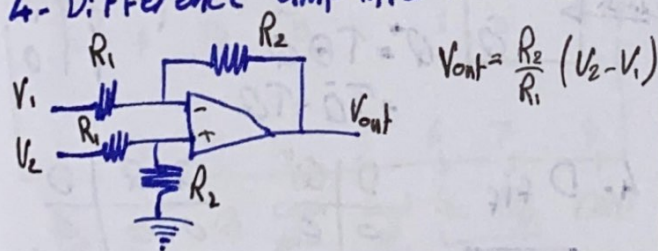 4- Difference amp
R₁
R₂
V₁
R₁
V₂
-
+
Vout
R₂
Vout = R₂/R₁ (V₂ - V₁)
4. D